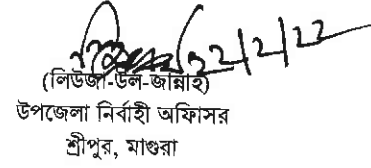 22/2/22
(লিউজা-উল-জান্নাহ)
উপজেলা নির্বাহী অফিসর
শ্রীপুর, মাগুরা